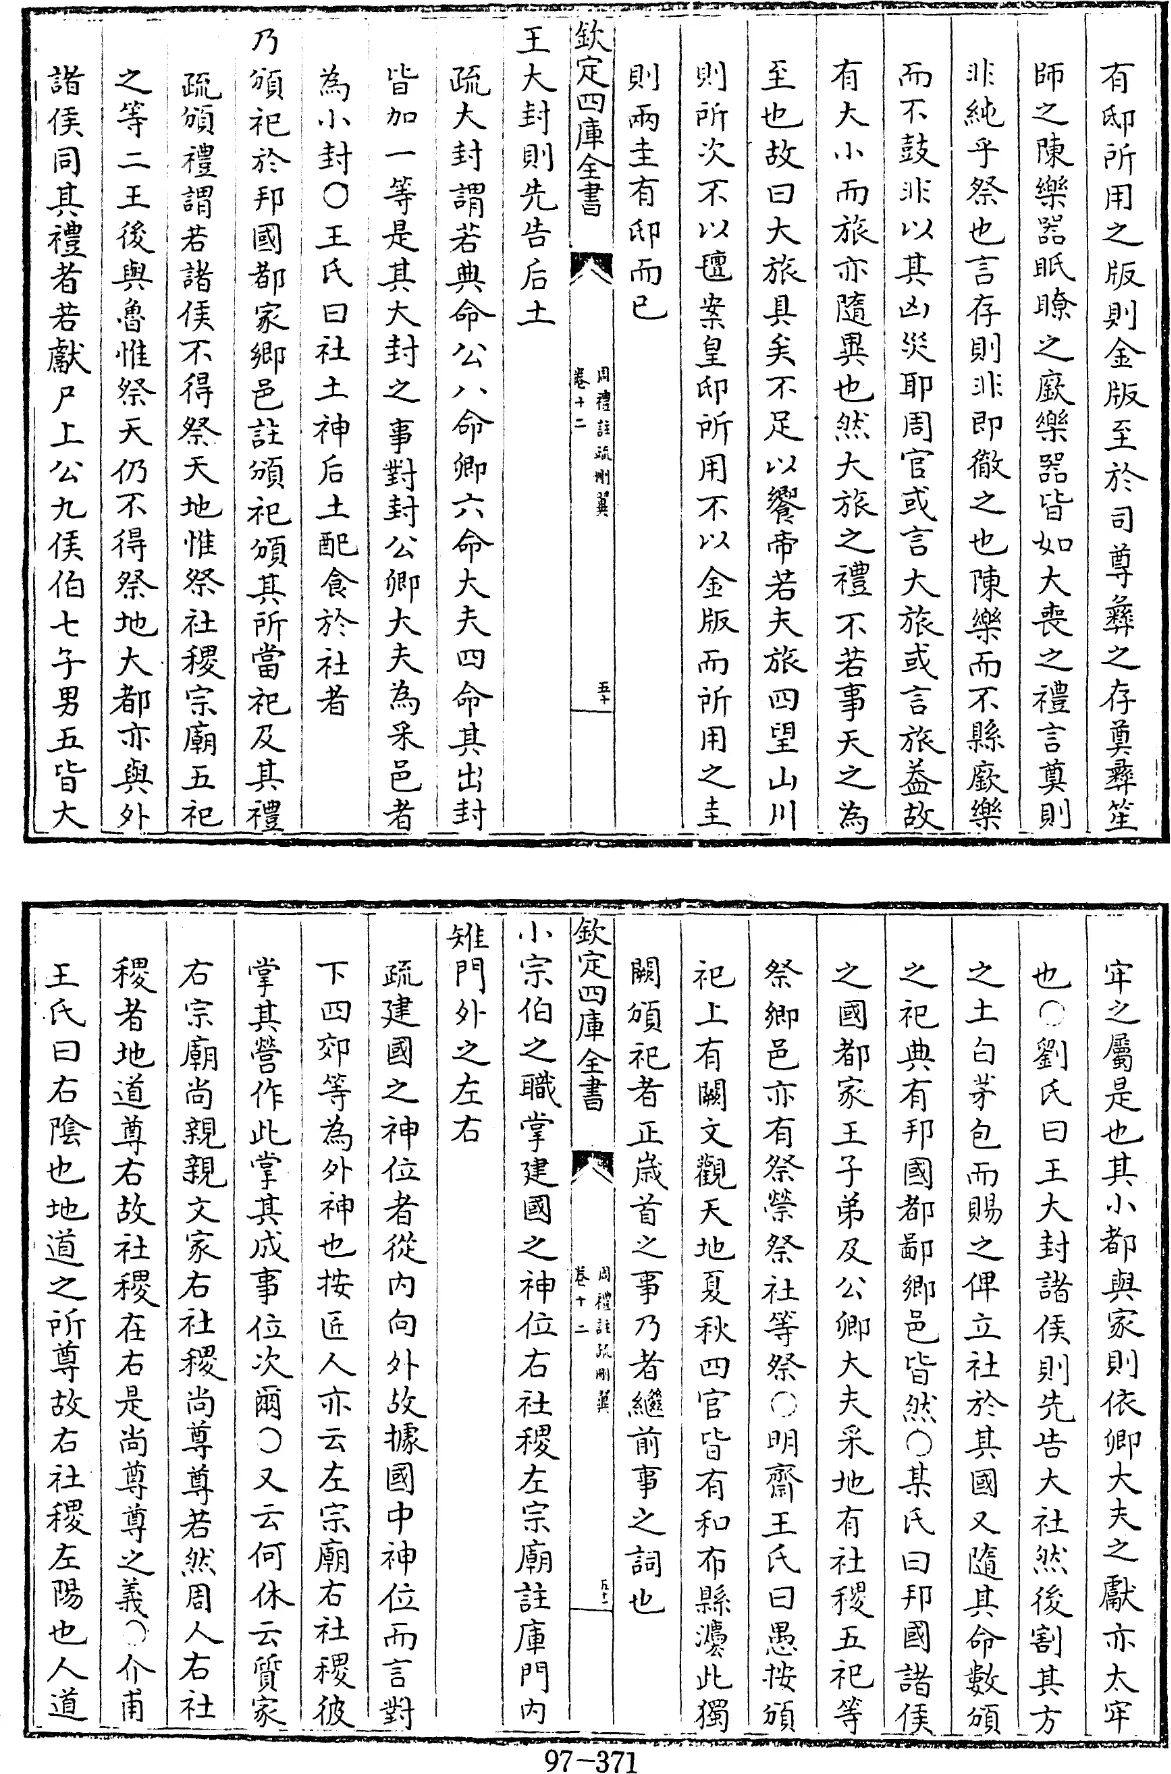 有邸所用之版則金版至於司尊彝之存奠彝笙
師之陳樂器眡瞭之廞樂器皆如大喪之禮言奠則
非純乎祭也言存則非即徹之也陳樂而不縣廞樂
而不鼓非以其凶災耶周官或言大旅或言旅葢故
有大小而旅亦隨異也然大旅之禮不若事天之為
至也故曰大旅具矣不足以饗帝若夫旅四望山川
則所次不以氊案皇邸所用不以金版而所用之圭
則兩圭有邸而已
欽定四庫全書
周禮註疏刪翼
卷十二
五十
王大封則先告后土
疏大封謂若典命公八命卿六命大夫四命其出封
皆加一等是其大封之事對封公卿大夫為采邑者
為小封○王氏曰社土神后土配食於社者
乃頒祀於邦國都家鄉邑註頒祀頒其所當祀及其禮
疏頒禮謂若諸侯不得祭天地惟祭社稷宗廟五祀
之等二王後與魯惟祭天仍不得祭地大都亦與外
諸侯同其禮者若獻尸上公九侯伯七子男五皆大
牢之屬是也其小都與家則依卿大夫之獻亦太牢
也○劉氏曰王大封諸侯則先告大社然後割其方
之土白茅包而賜之俾立社於其國又隨其命數頒
之祀典有邦國都鄙鄉邑皆然○某氏曰邦國諸侯
之國都家王子弟及公卿大夫采地有社稷五祀等
祭鄉邑亦有祭禜祭社等祭○明齋王氏曰愚按頒
祀上有闕文觀天地夏秋四官皆有和布縣灋此獨
闕頒祀者正歲首之事乃者繼前事之詞也
欽定四庫全書
周禮註疏刪翼
卷十二
五十一
小宗伯之職掌建國之神位右社稷左宗廟註庫門內
雉門外之左右
疏建國之神位者從內向外故據國中神位而言對
下四郊等為外神也按匠人亦云左宗廟右社稷彼
掌其營作此掌其成事位次爾○又云何休云質家
右宗廟尚親親文家右社稷尚尊尊若然周人右社
稷者地道尊右故社稷在右是尚尊尊之義○介甫
王氏曰右陰也地道之所尊故右社稷左陽也人道
97-371